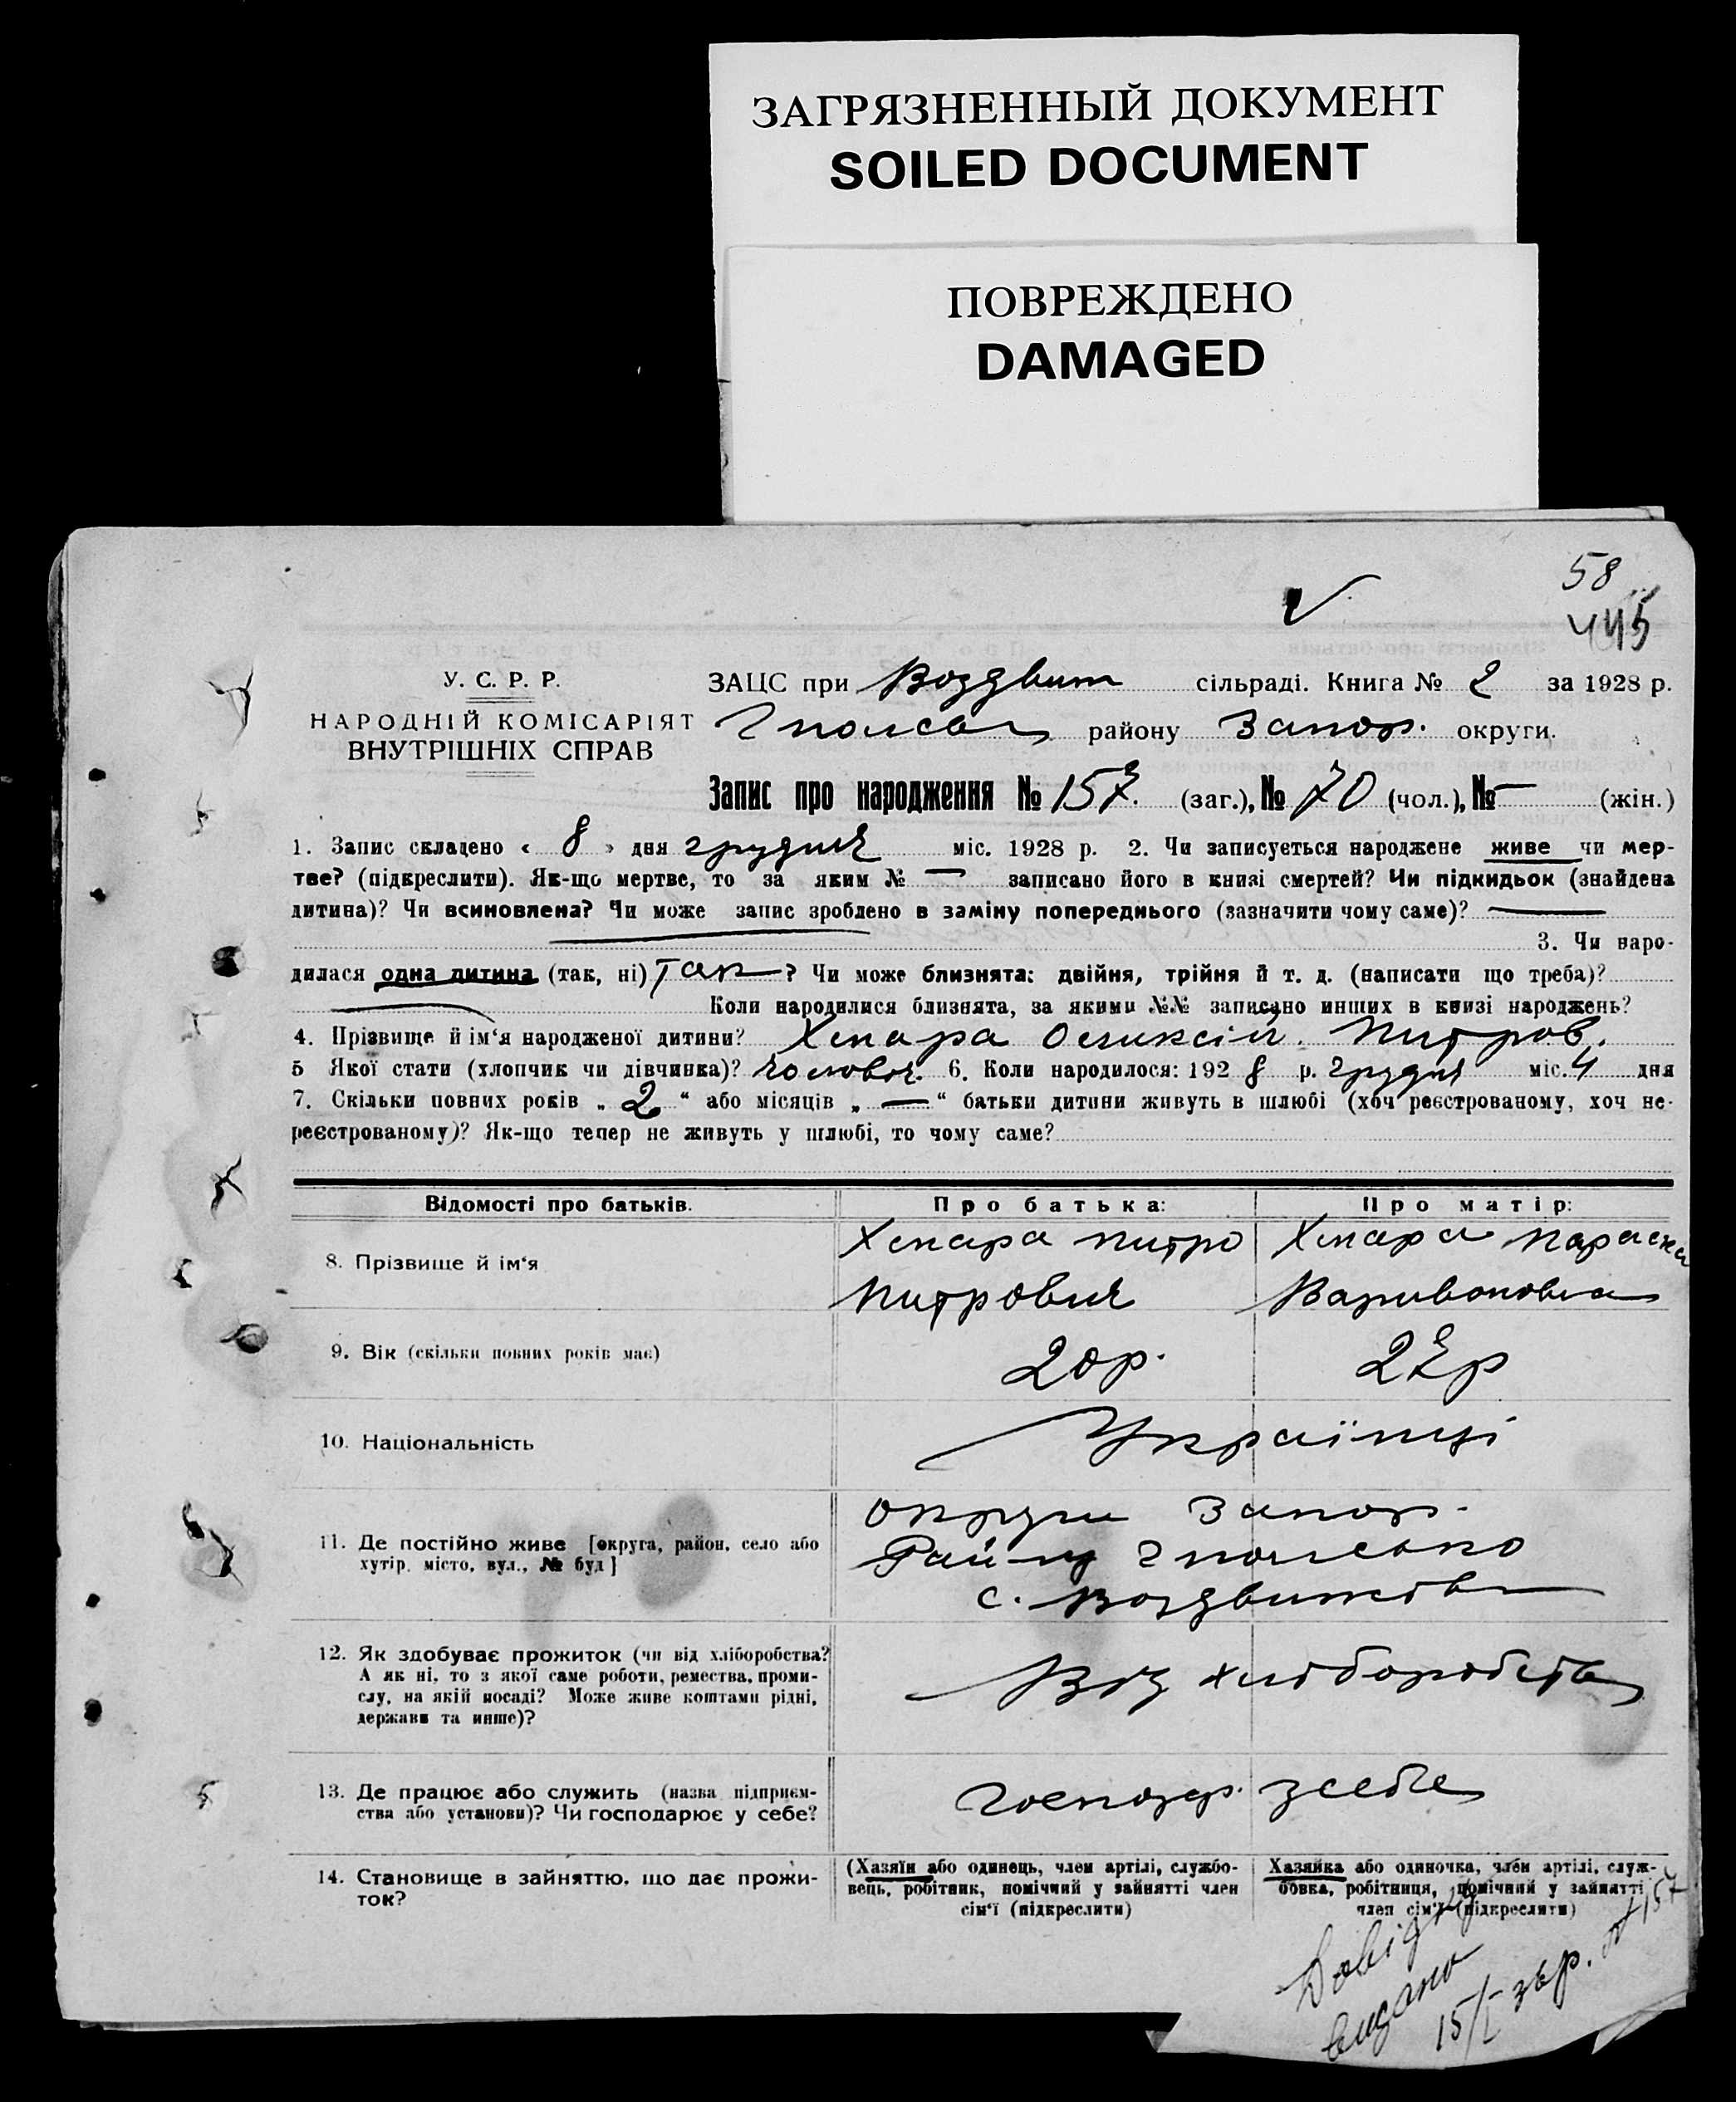 ЗАГРЯЗНЕННЫЙ ДОКУМЕНТ
SOILED DOCUMENT
ПОВРЕЖДЕНО
DAMAGED
58
445
У. С. Р. Р.
НАРОДНІЙ КОМІСАРІЯТ
ВНУТРІШНІХ СПРАВ
ЗАЦС при Воздвиж сільраді. Книга № 2 за 1928 р.
району Запор. округи.
Запис про народження № 157. (заг.), № 70 (чол.), № — (жін.)
1. Запис складено « 8 » дня грудня міс. 1928 р. 2. Чи записується народжене живе чи мер-
тве? (підкреслити). Як-що мертве, то за яким № — записано його в книзі смертей? Чи підкидьок (знайдена
дитина)? Чи всиновлена? Чи може запис зроблено в заміну попереднього (зазначити чому саме)? —
3. Чи наро-
дилася одна дитина (так, ні) Так ? Чи може близнята: двійня, трійня й т. д. (написати що треба)?
Коли народилися близнята, за якими №№ записано инших в книзі народжень?
4. Прізвище й ім‘я народженої дитини? Хмара Оликсій. Питров.
5 Якої стати (хлопчик чи дівчинка)? чоловіч. 6. Коли народилося: 192 8 р. грудня міс. 4 дня
7. Скільки повних років „ 2 “ або місяців „ — “ батьки дитини живуть в шлюбі (хоч реєстрованому, хоч не-
реєстрованому)? Як-що тепер не живуть у шлюбі, то чому саме?
Відомості про батьків. Про батька: Про матір:
8. Прізвище й ім‘я Хмара Питро Хмара Параска
Питрович Варивоновна
9. Вік (скільки повних років має) 20р. 22р
10. Національність Українці
11. Де постійно живе [округа, район, село або
хутір, місто, вул., № буд]
округи Запор.
Рай-ну
с. Воздвижівка
12. Як здобуває прожиток (чи від хліборобства?
А як ні, то з якої саме роботи, ремества, проми-
слу, на якій посаді? Може живе коштами рідні,
держави та инше)?
Від хліборобства
13. Де працює або служить (назва підприєм-
ства або установи)? Чи господарює у себе?
Господар. усебе
14. Становище в зайняттю, що дає прожи-
ток?
(Хазяїн або одинець, член артілі, службо-
вець, робітник, помічний у зайнятті член
сім‘ї (підкреслити)
Хазяйка або одиночка, член артілі, служ-
бовка, робітниця, помічний у зайнятті
член сім‘ї (підкреслити)
Довідку
видано
15/I 36р. № 157